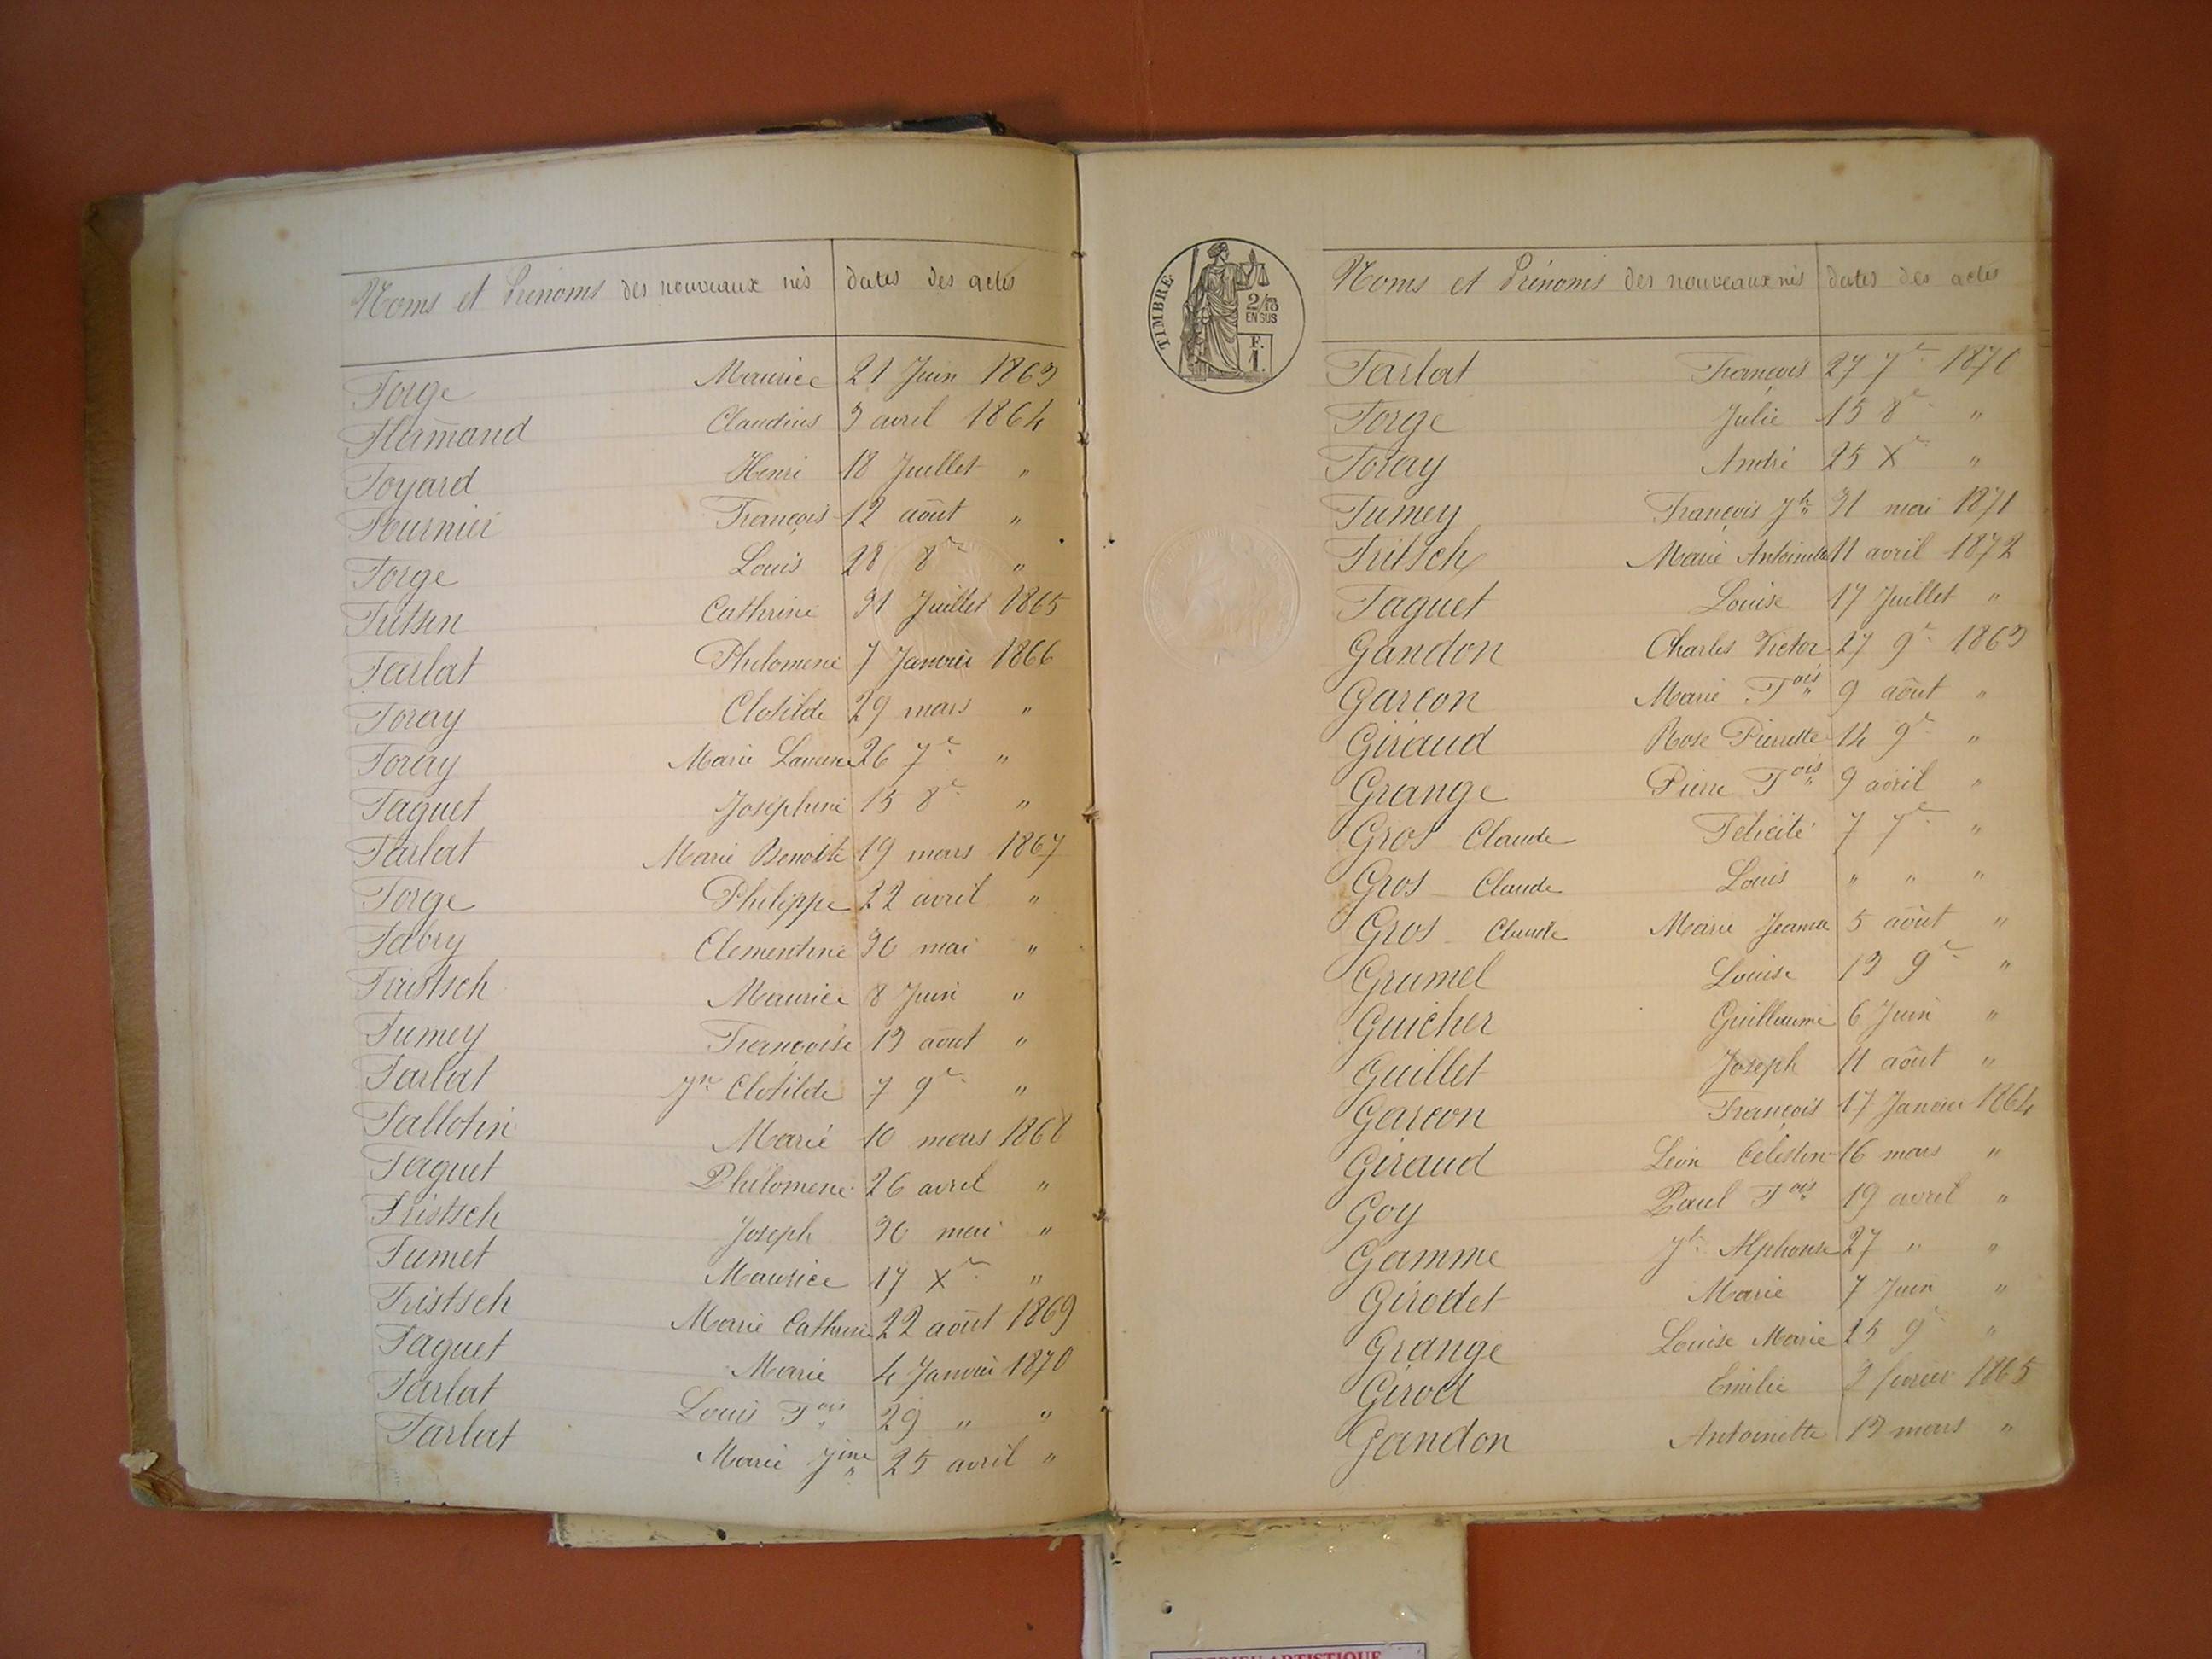 Noms et Prénoms des nouveaux nés dates des actes
Forge Maurice 21 Juin 1863
Flamand Claudius 3 avril 1864
Foyard Henri 18 Juillet "
Fournier François 12 août "
Forge Louis 28 8e "
Cathrine 31 Juillet 1865
Farlat Philomene 7 Janvier 1866
Foray Clotilde 29 mars "
Foray Marie 26 7e "
Faguet Joséphine 15 8e "
Farlat Marie Benoite 19 mars 1867
Forge Philippe 22 avril "
Fabry Clementine 30 mai "
Maurice 8 Juin "
Fumey Françoise 13 août "
Farlat Jne Clotilde 7 9e "
Fallotin Marie 10 mars 1868
Faguet Philomene 26 avril "
Fristsch Joseph 30 mai "
Fumet Maurice 17 Xe "
Fristsch Marie Cathrine 22 août 1869
Faguet Marie 4 Janvier 1870
Farlat Louis Fois 29 " "
Farlat Marie Jine 25 avril "
TIMBRE
2/10
EN SUS
F.
1.
Noms et Prénoms des nouveaux nés dates des actes
Farlat François 27 7e 1870
Forge Julie 15 8e "
Foray André 25 Xe "
Fumey François Jh 31 mai 1871
Fritsch Marie Antoinette 11 avril 1872
Faguet Louise 17 Juillet "
Gandon Charles Victor 27 9e 1863
Garcon Marie Fois 9 août "
Giraud Rose Pierrette 14 9e "
Grange Pierre Fois 9 avril "
Gros Claude Félicité 7 7e "
Gros Claude Louis " " "
Gros Claude Marie Jeanne 5 août "
Grumel Louise 13 9e "
Guicher Guillaume 6 Juin "
Guillet Joseph 11 août "
Garcon François 17 Janvier 1864
Giraud Léon Célestin 16 mars "
Goy Paul Fois 19 avril "
Gamme Jh Alphonse 27 " "
Girodet Marie 7 Juin "
Grange Louise Marie 25 9e "
Girod Emilie 2 fevrier 1865
Gandon Antoinette 13 mars "
ARTISTIQUE